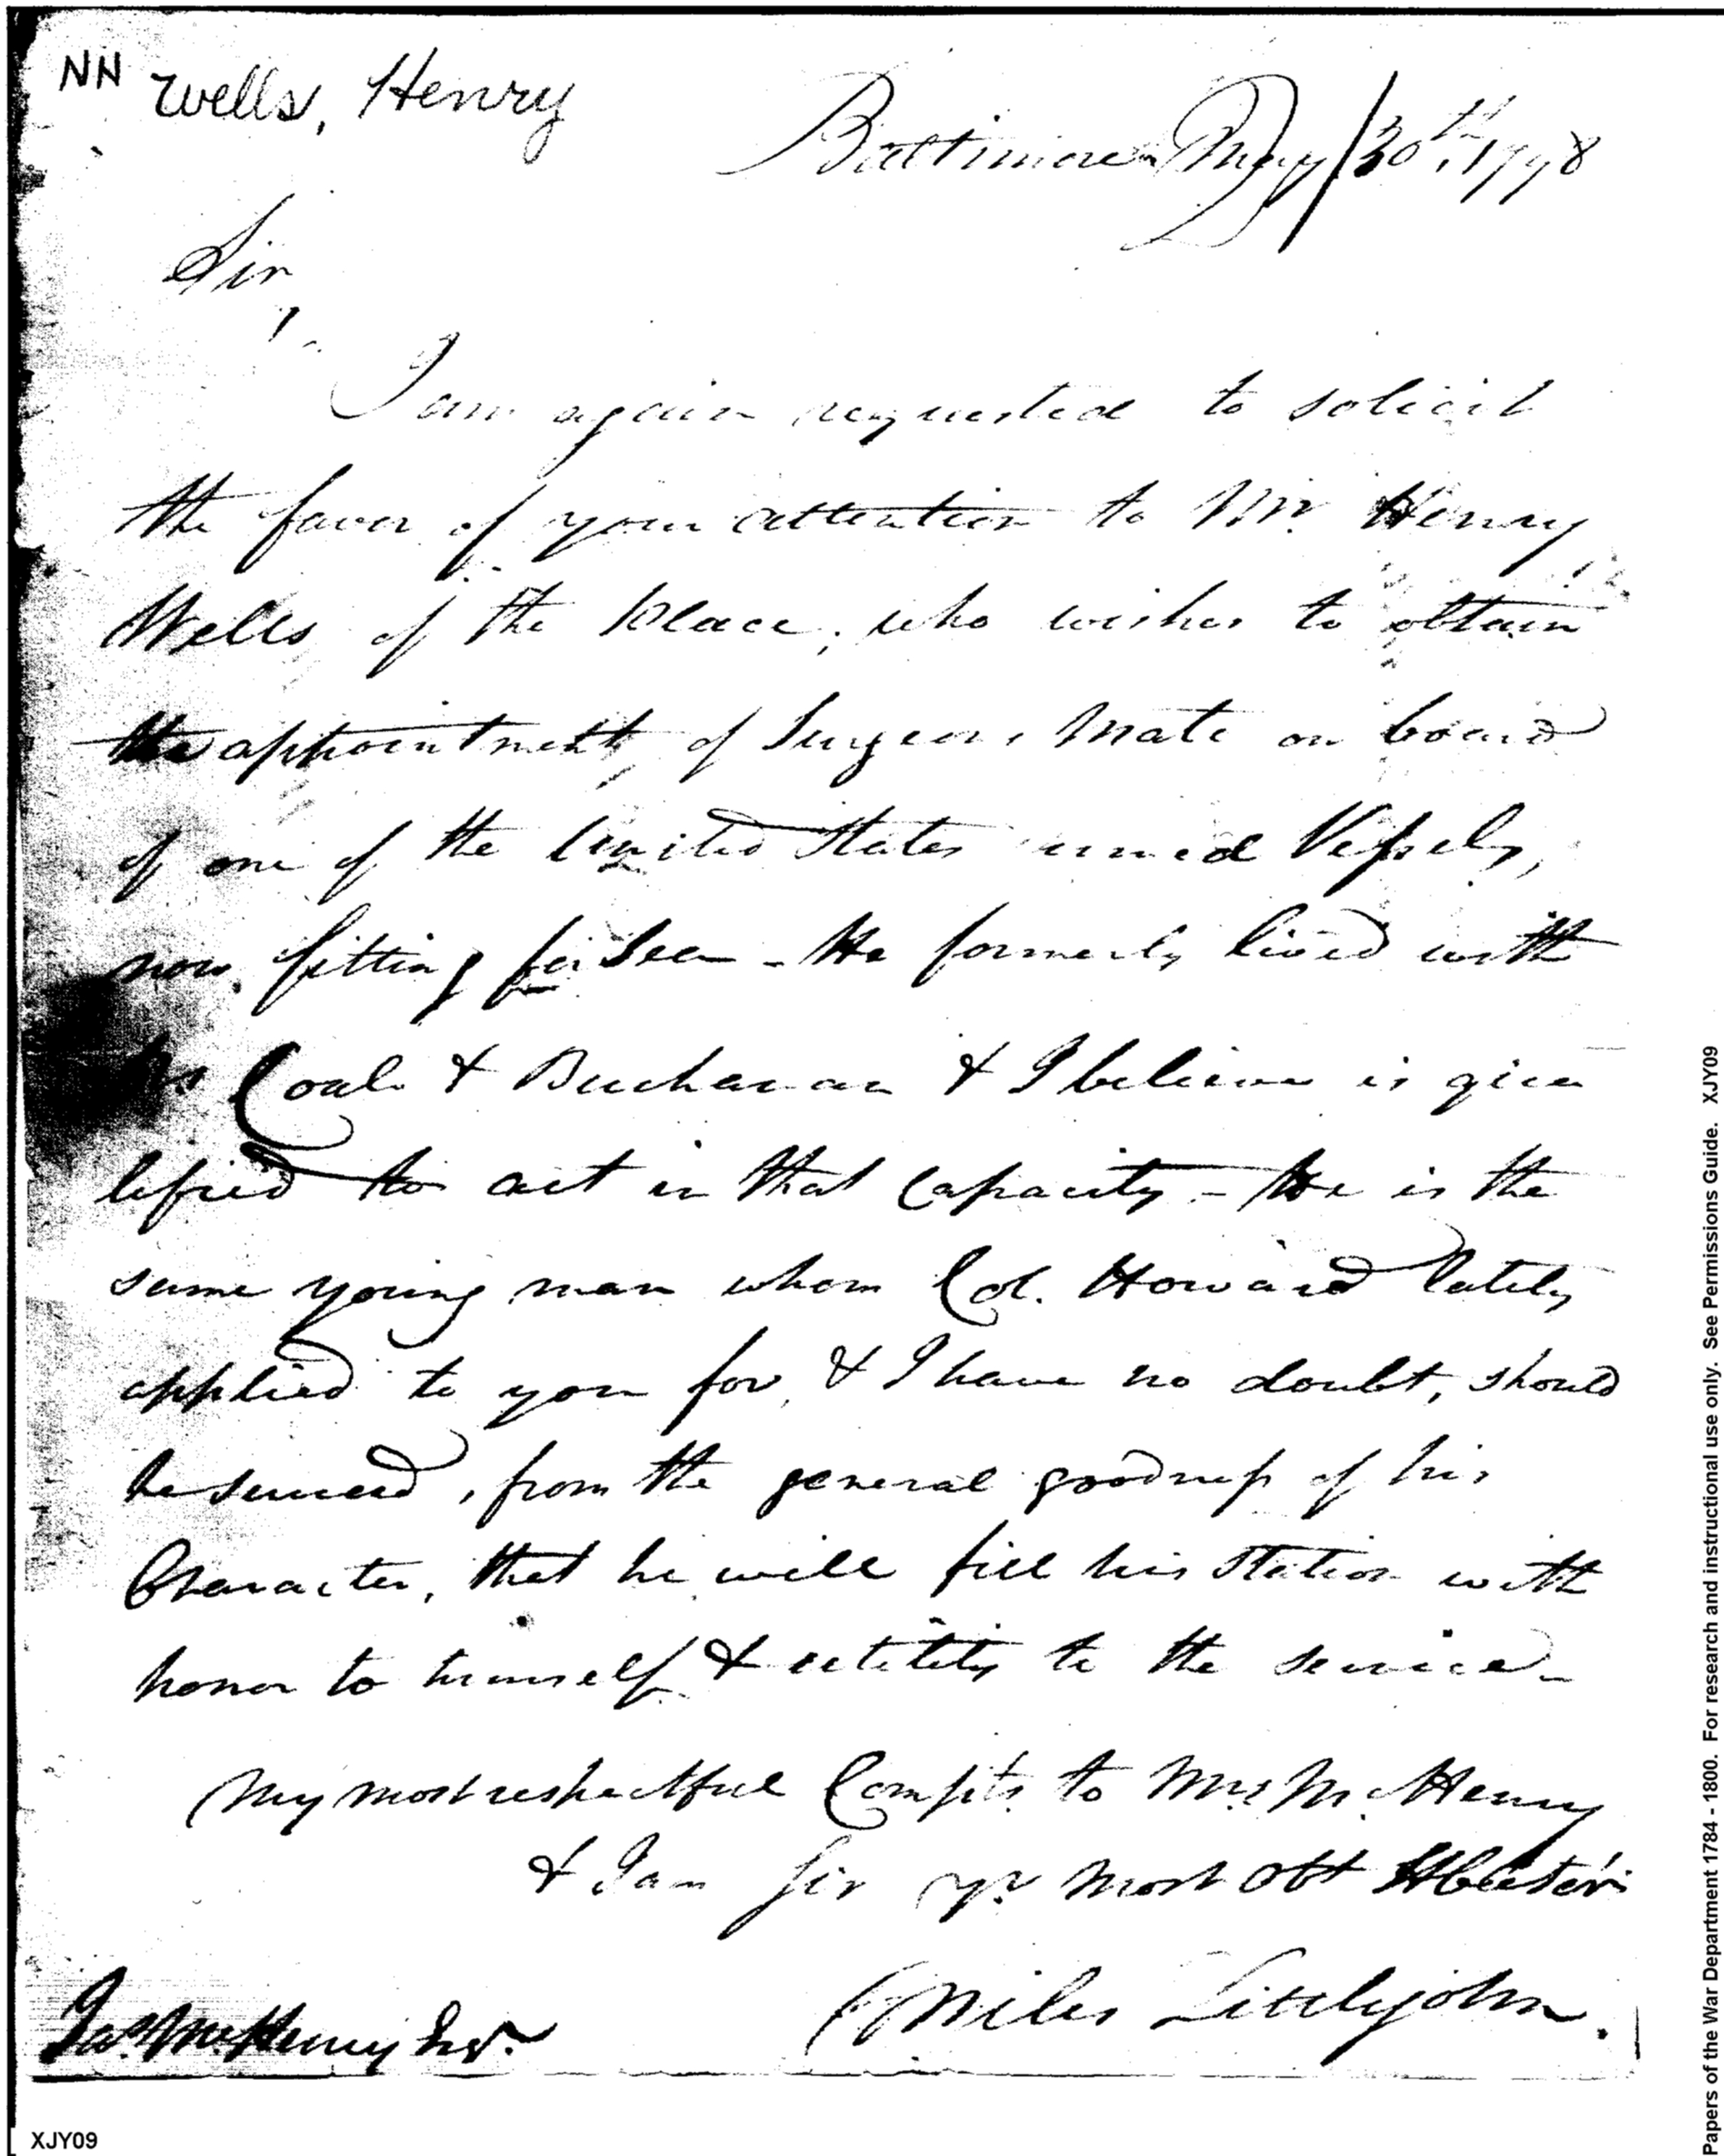 NH Wells, Henry
Baltimore May 30th, 1798
Sir,
I am again requested to solicit
the favor of your attention to Mr. Henry
Wells of the place, who wishes to obtain
the appointment of Surgeons Mate on board
of one of the United States armed Vessels,
now fitting for Sea - He formerly lived with
Drs Coale & Buchanan & I believe is qua
lified to act in that Capacity - He is the
same young man whom Col. Howard lately
applied to you for, & I have no doubt, should
he succeed, from the general goodness of his
Character, that he will fill his station with
honor to himself & utility to the service -
My most respectful Compts. to Mrs McHenry
& I am Sir yr. most Obt
Miles Littlejohn.
Jas. McHenry Esqr.
XJY09
Papers of the War Department 1784 - 1800. For research and instructional use only. See Permissions Guide. XJY09